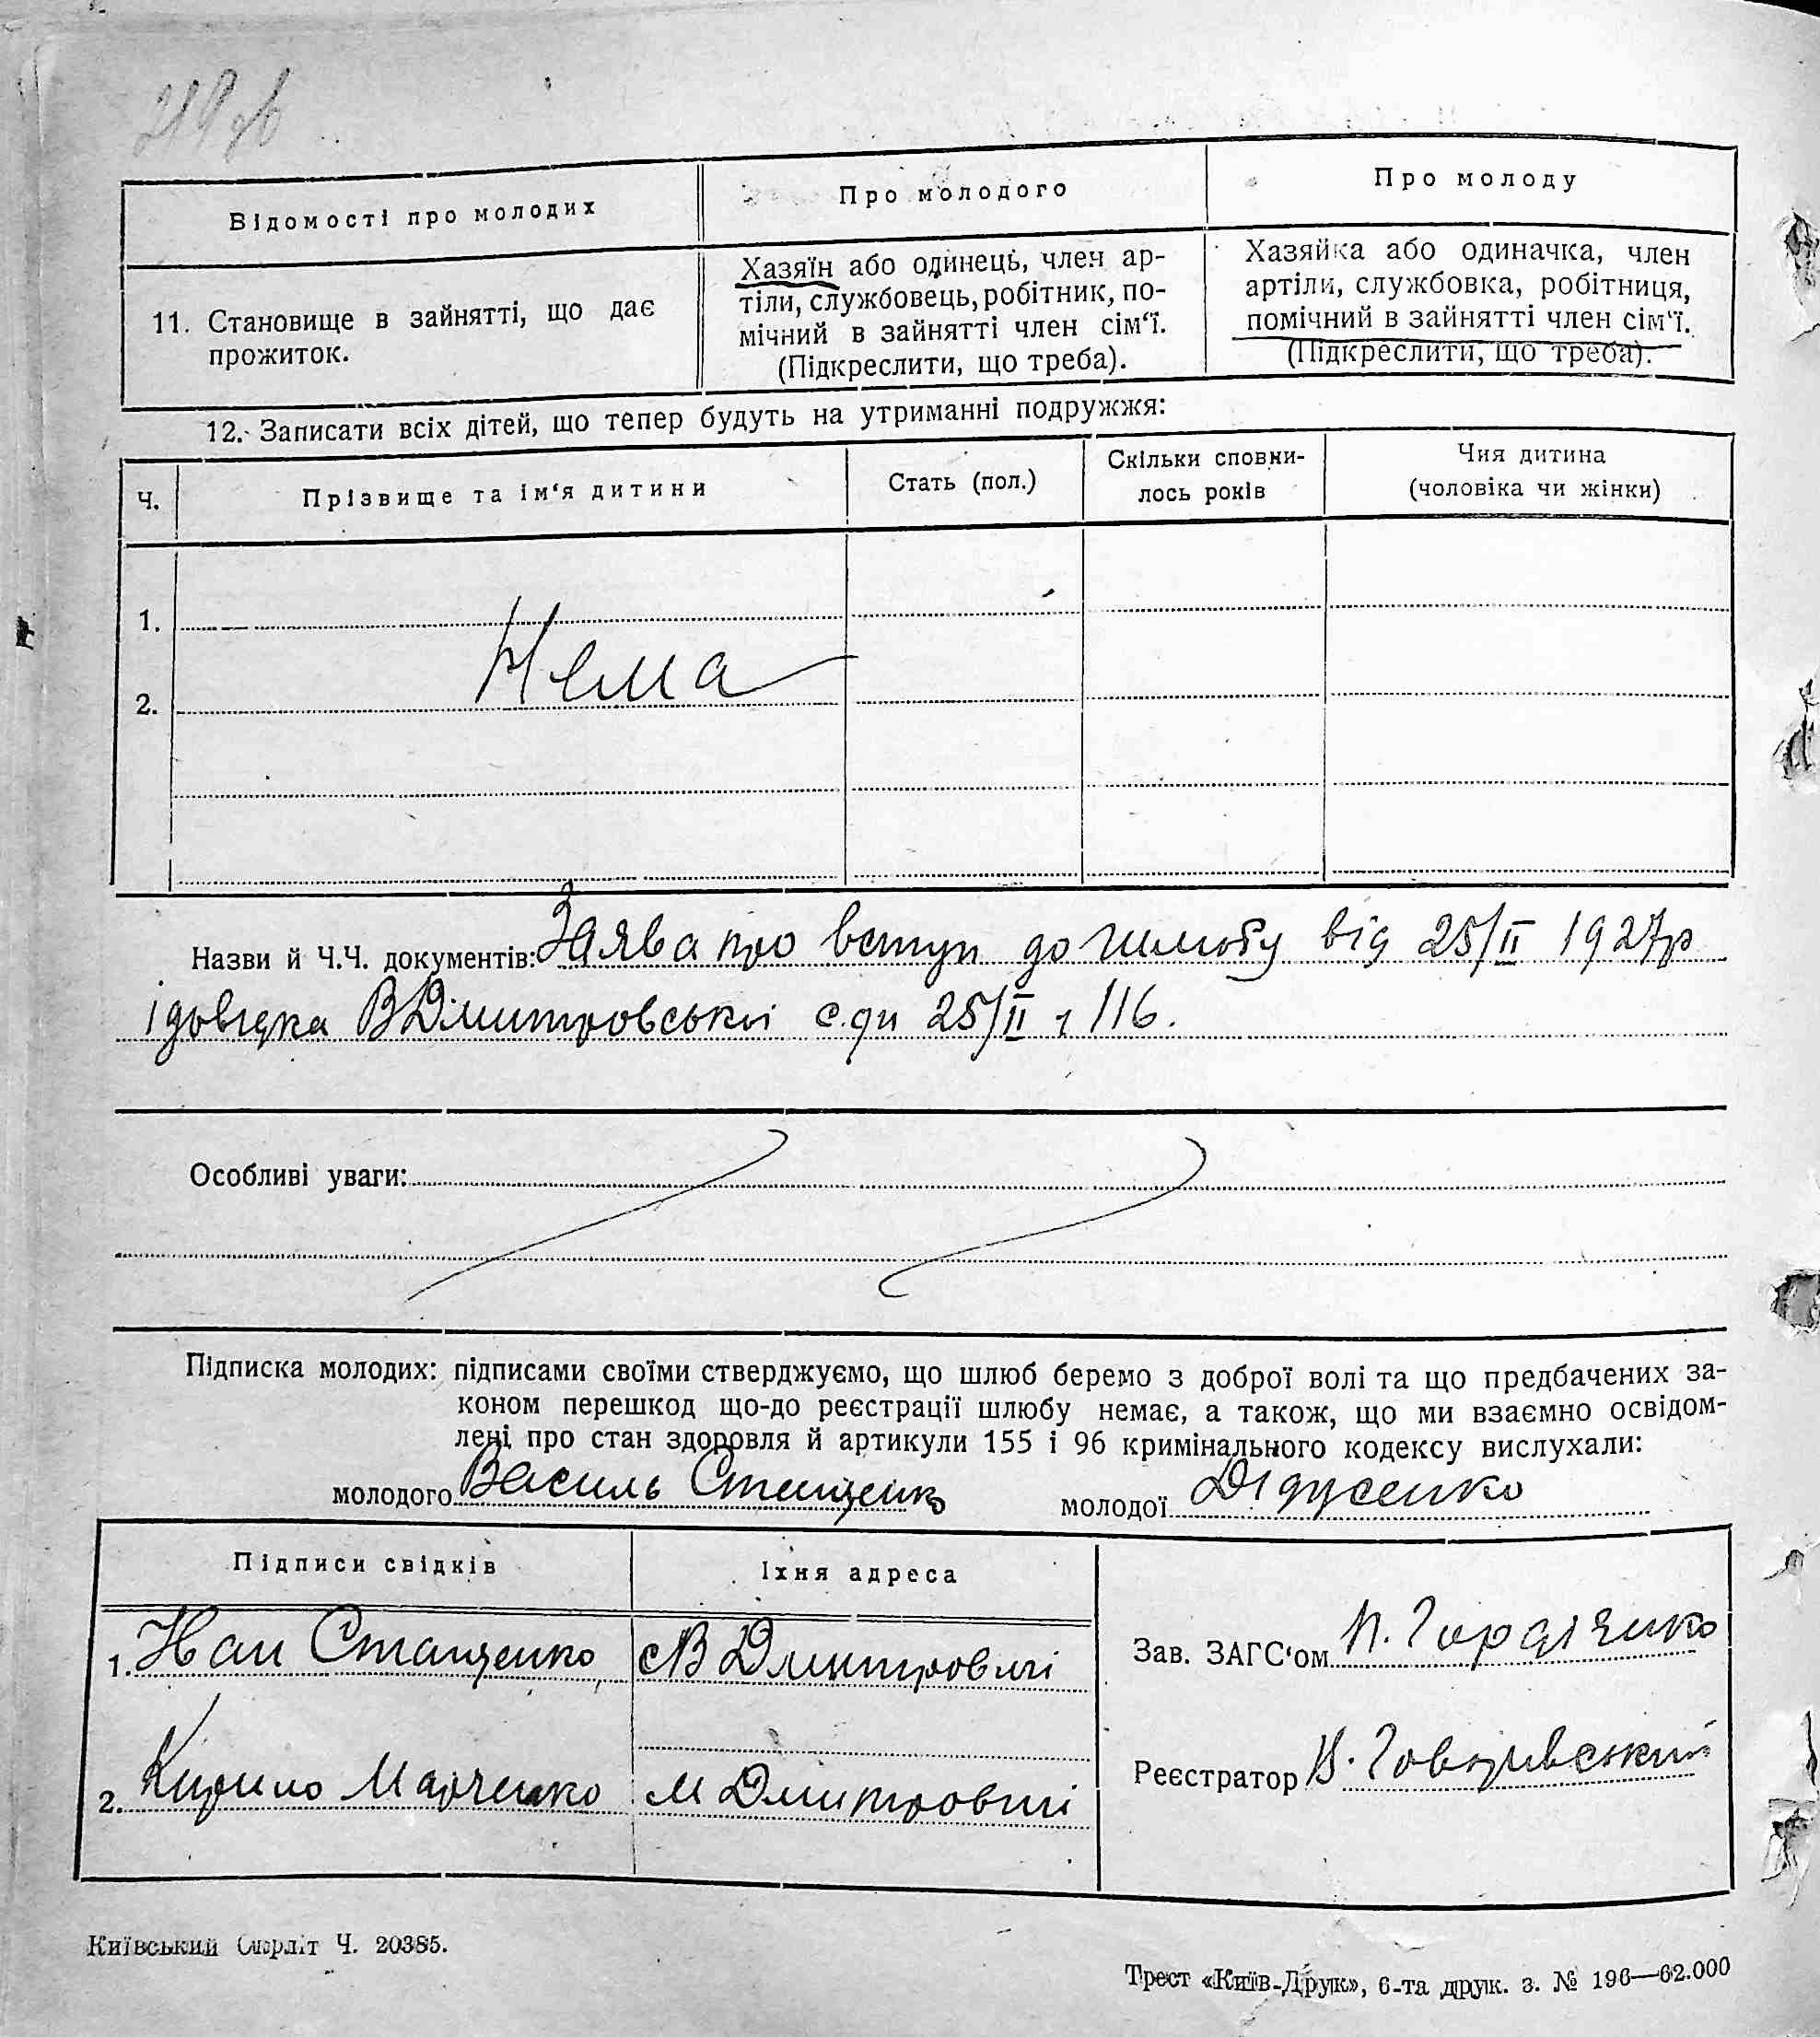 219 зв
Відомості про молодих
Про молодого
Про молоду
11. Становище в зайнятті, що дає
прожиток.
Хазяїн або одинець, член ар-
тіли, службовець, робітник, по-
мічний в зайнятті член сім'ї.
(Підкреслити, що треба).
Хазяйка або одиначка, член
артіли, службовка, робітниця,
помічний в зайнятті член сім'ї.
(Підкреслити, що треба).
12. Записати всіх дітей, що тепер будуть на утриманні подружжя:
Ч.
Прізвище та ім'я дитини
Стать (пол.)
Скільки сповни-
лось років
Чия дитина
(чоловіка чи жінки)
1.
Нема
2.
Назви й Ч.Ч. документів: Заява про вступ до шлюбу від 25/II 1927р
і довідка ВДмитровської с.ди 25/II 116.
Особливі уваги:
Підписка молодих: підписами своїми стверджуємо, що шлюб беремо з доброї волі та що предбачених за-
коном перешкод що-до реєстрації шлюбу немає, а також, що ми взаємно освідом-
лені про стан здоровля й артикули 155 і 96 кримінального кодексу вислухали:
молодого Василь Стащенко молодої Дідусенко
Підписи свідків
Їхня адреса
1. Стащенко
с В Дмитровичі
Зав. ЗАГС'ом П. Гордієнко
2. Кирило Марченко
М Дмитровичі
Реєстратор
Київський Окрліт Ч. 20385.
Трест «Київ-Друк», 6-та друк. з. № 196—62.000